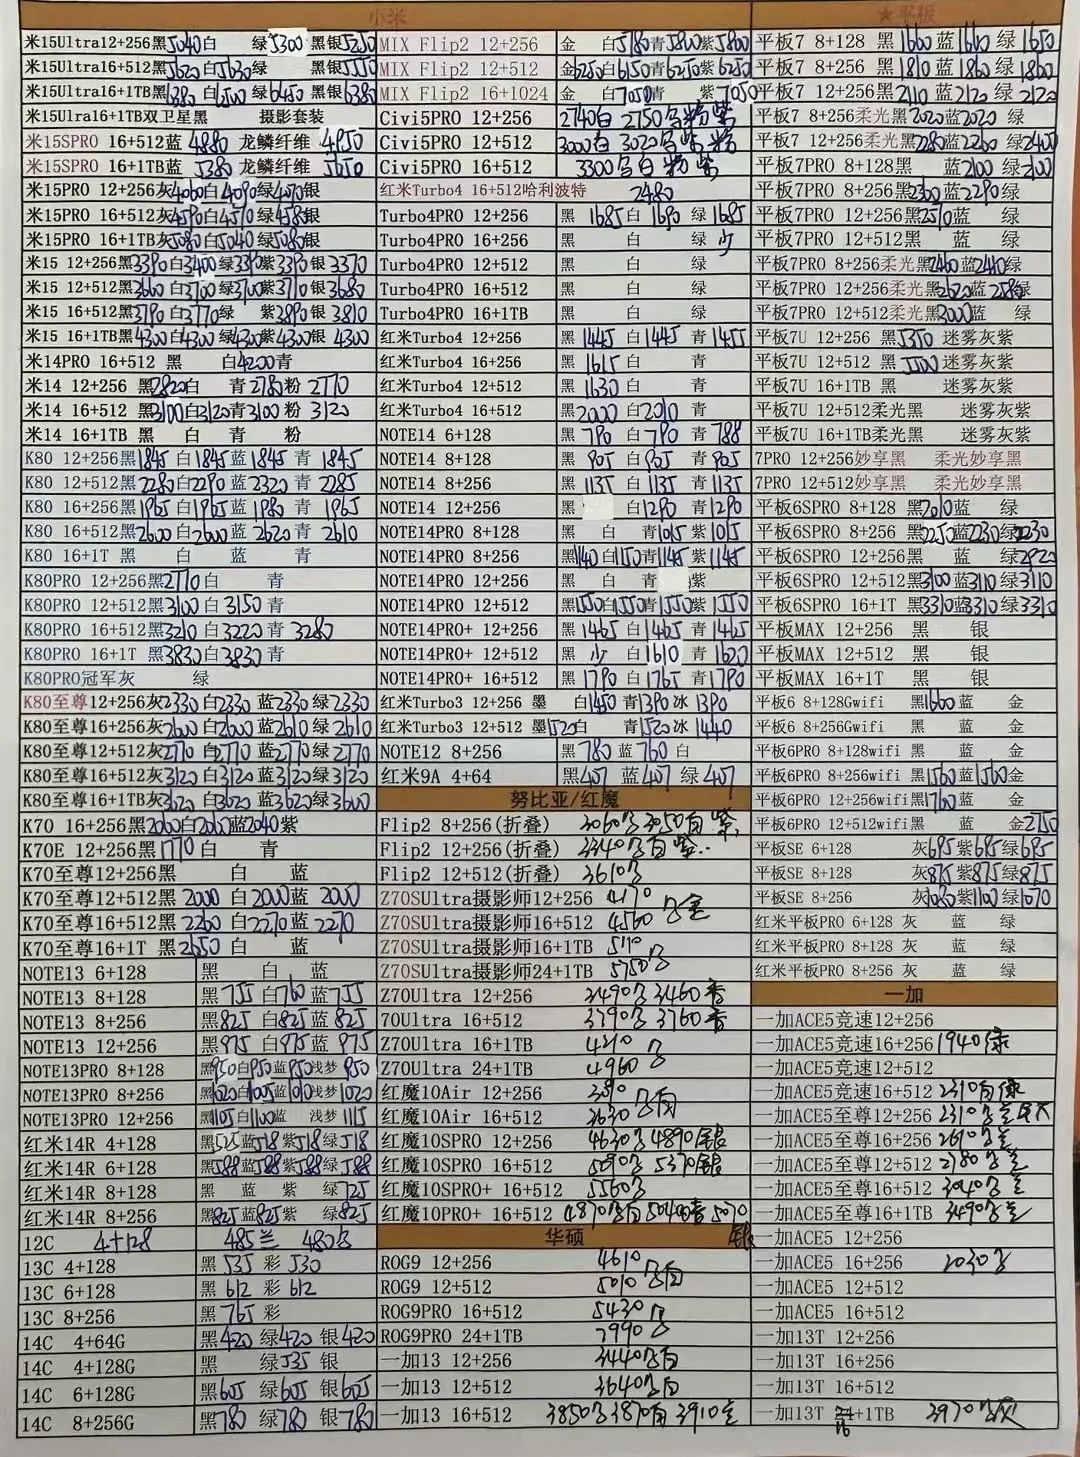 小米
米15Ultra12+256黑5040白 绿5300 黑银5250
米15Ultra16+512黑5620白5630绿 黑银5550
米15Ultra16+1TB黑6380白6500绿6450黑银6380
米15Ulra16+1TB双卫星黑 摄影套装
米15SPRO 16+512蓝 4880 龙鳞纤维 4950
米15SPRO 16+1TB蓝 5380 龙鳞纤维
米15PRO 12+256灰4060白4090绿4070银
米15PRO 16+512灰4590白4510绿4585银
米15PRO 16+1TB灰5080白5040绿5080银
米15 12+256黑3390白3400绿3390紫3390银3370
米15 12+512黑3660白3700绿3700紫3710银3680
米15 16+512黑3790白3770绿 紫3890银3810
米15 16+1TB黑4300白4300绿4300紫4300银4300
米14PRO 16+512 黑 白4200青
米14 12+256 黑2820白 青2780粉 2770
米14 16+512 黑3100白3120青3100 粉 3120
米14 16+1TB 黑 白 青 粉
K80 12+256黑1845白1845蓝1845青1845
K80 12+512黑2280白2290蓝2320青2285
K80 16+256黑1965白1965蓝1980青1965
K80 16+512黑2600白2600蓝2620青2610
K80 16+1T 黑 白 蓝 青
K80PRO 12+256黑2770白 青
K80PRO 12+512黑3100白3150青
K80PRO 16+512黑3210白3220青3280
K80PRO 16+1T 黑3830白3830青
K80PRO冠军灰 绿
K80至尊12+256灰2330白2330蓝2330绿2330
K80至尊16+256灰2600白2600蓝2610绿2610
K80至尊12+512灰2770白2770蓝2770绿2770
K80至尊16+512灰3120白3120蓝3120绿3120
K80至尊16+1TB灰3620白3620蓝3620绿3600
K70 16+256黑2060白2060蓝2040紫
K70E 12+256黑1770白 青
K70至尊12+256黑 白 蓝
K70至尊12+512黑2000白2000蓝2000
K70至尊16+512黑2260白2270蓝2270
K70至尊16+1T 黑2650白 蓝
NOTE13 6+128 黑 白 蓝
NOTE13 8+128 黑755白760蓝755
NOTE13 8+256 黑825白825蓝825
NOTE13 12+256 黑975白975蓝975
NOTE13PRO 8+128 黑950白950蓝950浅梦950
NOTE13PRO 8+256 黑1020白1005蓝1010浅梦1020
NOTE13PRO 12+256 黑1105白1100蓝 浅梦1115
红米14R 4+128 黑525蓝518紫518绿518
红米14R 6+128 黑588蓝588紫588绿588
红米14R 8+128 黑 蓝 紫 绿725
红米14R 8+256 黑825蓝825紫 绿825
12C 4+128 485兰 480
13C 4+128 黑535彩530
13C 6+128 黑612彩612
13C 8+256 黑765彩
14C 4+64G 黑420绿420银420
14C 4+128G 黑 绿535银
14C 6+128G 黑605绿605银605
14C 8+256G 黑780绿780银780
MIX Flip2 12+256 金 白5780青5800紫5800
MIX Flip2 12+512 金6250白6150青6250紫6250
MIX Flip2 16+1024 金 白7050青 紫7050
Civi5PRO 12+256 2740白 2750 粉 紫
Civi5PRO 12+512 3000白 3020 紫 粉
Civi5PRO 16+512 3300 白 粉 紫
红米Turbo4 16+512哈利波特 2480
Turbo4PRO 12+256 黑1685白1690绿1685
Turbo4PRO 16+256 黑 白 绿 少
Turbo4PRO 12+512 黑 白 绿
Turbo4PRO 16+512 黑 白 绿
Turbo4PRO 16+1TB 黑 白 绿
红米Turbo4 12+256 黑1445白1445青1455
红米Turbo4 16+256 黑1615白 青
红米Turbo4 12+512 黑1630白 青
红米Turbo4 16+512 黑2000白2010青
NOTE14 6+128 黑790白790青788
NOTE14 8+128 黑905白905青905
NOTE14 8+256 黑1135白1135青1135
NOTE14 12+256 黑 白1290青1290
NOTE14PRO 8+128 黑 白 青1015紫1015
NOTE14PRO 8+256 黑1140白1150青1145紫1145
NOTE14PRO 12+256 黑 白 青 紫
NOTE14PRO 12+512 黑1550白1550青1550紫1550
NOTE14PRO+ 12+256 黑1465白1465青1465
NOTE14PRO+ 12+512 黑少白1610青1620
NOTE14PRO+ 16+512 黑1790白1765青1790
红米Turbo3 12+256 墨 白1450青1390冰1390
红米Turbo3 12+512 墨1520白 青1520冰1440
NOTE12 8+256 黑780蓝760白
红米9A 4+64 黑407蓝407绿407
努比亚/红魔
Flip2 8+256(折叠) 3060 3050白 紫
Flip2 12+256(折叠) 3340 白 紫
Flip2 12+512(折叠) 3610
Z70SUltra摄影师12+256 4170
Z70SUltra摄影师16+512 4560
Z70SUltra摄影师16+1TB 5110
Z70SUltra摄影师24+1TB 5750
Z70Ultra 12+256 3490 3460
70Ultra 16+512 3790 3760
Z70Ultra 16+1TB 4310
Z70Ultra 24+1TB 4960
红魔10Air 12+256
红魔10Air 16+512 3630
红魔10SPRO 12+256 4630 4890银
红魔10SPRO 16+512 5090 5370银
红魔10SPRO+ 16+512 5560
红魔10PRO+ 16+512 4870 白 5040 5070银
华硕
ROG9 12+256 4610
ROG9 12+512 5010 白
ROG9PRO 16+512 5430
ROG9PRO 24+1TB 7990
一加13 12+256 3440 白
一加13 12+512 3640 白
一加13 16+512 3850 3870白 3910
★平板
平板7 8+128 黑1660蓝1660绿1650
平板7 8+256 黑1810蓝1860绿1860
平板7 12+256 黑2110蓝2120绿2120
平板7 8+256柔光黑2020蓝2020绿
平板7 12+256柔光黑2280蓝2260绿2400
平板7PRO 8+128黑 蓝2100绿2100
平板7PRO 8+256黑2300蓝2290绿
平板7PRO 12+256黑2510蓝 绿
平板7PRO 12+512黑 蓝 绿
平板7PRO 8+256柔光黑2460蓝2440绿
平板7PRO 12+256柔光黑2620蓝2580绿
平板7PRO 12+512柔光黑3000蓝 绿
平板7U 12+256 黑5350 迷雾灰紫
平板7U 12+512 黑5500 迷雾灰紫
平板7U 16+1TB 黑 迷雾灰紫
平板7U 12+512柔光黑 迷雾灰紫
平板7U 16+1TB柔光黑 迷雾灰紫
7PRO 12+256妙享黑 柔光妙享黑
7PRO 12+512妙享黑 柔光妙享黑
平板6SPRO 8+128 黑2010蓝 绿
平板6SPRO 8+256 黑2250蓝2230绿2230
平板6SPRO 12+256黑 蓝 绿2920
平板6SPRO 12+512黑3100蓝3110绿3110
平板6SPRO 16+1T 黑3310蓝3310绿3310
平板MAX 12+256 黑 银
平板MAX 12+512 黑 银
平板MAX 16+1T 黑 银
平板6 8+128Gwifi 黑1660蓝 金
平板6 8+256Gwifi 黑 蓝 金
平板6PRO 8+128wifi 黑 蓝 金
平板6PRO 8+256wifi 黑1560蓝1560金
平板6PRO 12+256wifi黑1760蓝 金
平板6PRO 12+512wifi黑 蓝 金2150
平板SE 6+128 灰695紫695绿695
平板SE 8+128 灰875紫875绿875
平板SE 8+256 灰1080紫1100绿1070
红米平板PRO 6+128 灰 蓝 绿
红米平板PRO 8+128 灰 蓝 绿
红米平板PRO 8+256 灰 蓝 绿
一加
一加ACE5竞速12+256
一加ACE5竞速16+256 1940绿
一加ACE5竞速12+512
一加ACE5竞速16+512 2310白绿
一加ACE5至尊12+256 2310
一加ACE5至尊16+256 2610
一加ACE5至尊12+512 2780
一加ACE5至尊16+512 3040
一加ACE5至尊16+1TB 3490
一加ACE5 12+256
一加ACE5 16+256 2030
一加ACE5 12+512
一加ACE5 16+512
一加13T 12+256
一加13T 16+256
一加13T 16+512
一加13T 16+1TB 3970 灰